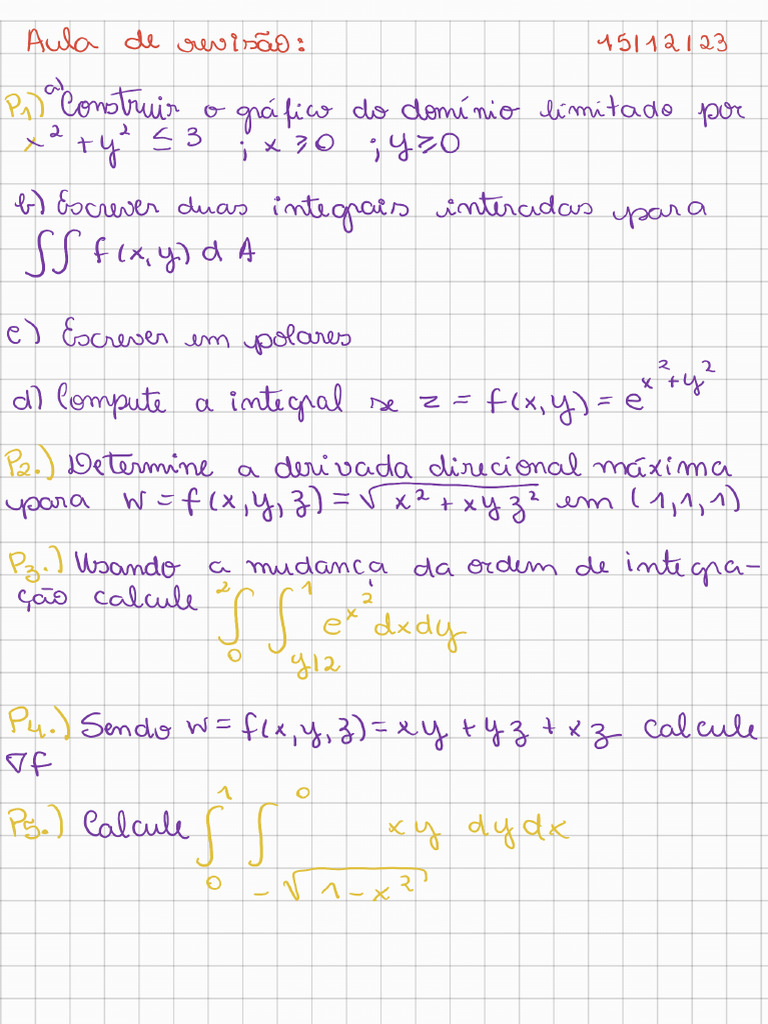 Aula de revisão: 15/12/23
P1) a) Construir o gráfico do domínio limitado por
x² + y² ≤ 3 ; x ≥ 0 ; y ≥ 0
b) Escrever duas integrais interadas para
∫∫ f(x,y) d A
c) Escrever em polares
d) Compute a integral se z = f(x,y) = e^{x²+y²}
P2.) Determine a derivada direcional máxima
para w = f(x,y,z) = √(x² + xyz²) em (1,1,1)
P3.) Usando a mudança da ordem de integra-
ção calcule ∫_0^2 ∫_{y/2}^1 e^{x²} dxdy
P4.) Sendo w = f(x,y,z) = xy + yz + xz calcule
∇f
P5.) Calcule ∫_0^1 ∫_{-√(1-x²)}^0 xy dydx